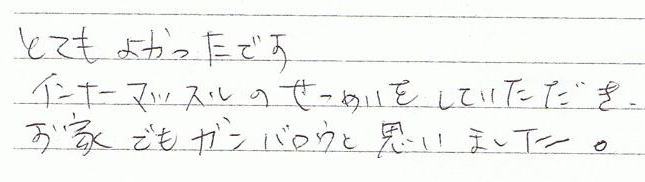 とてもよかったです
インナーマッスルのせつめいをしていただき、
お家でもガンバロウと思いました。